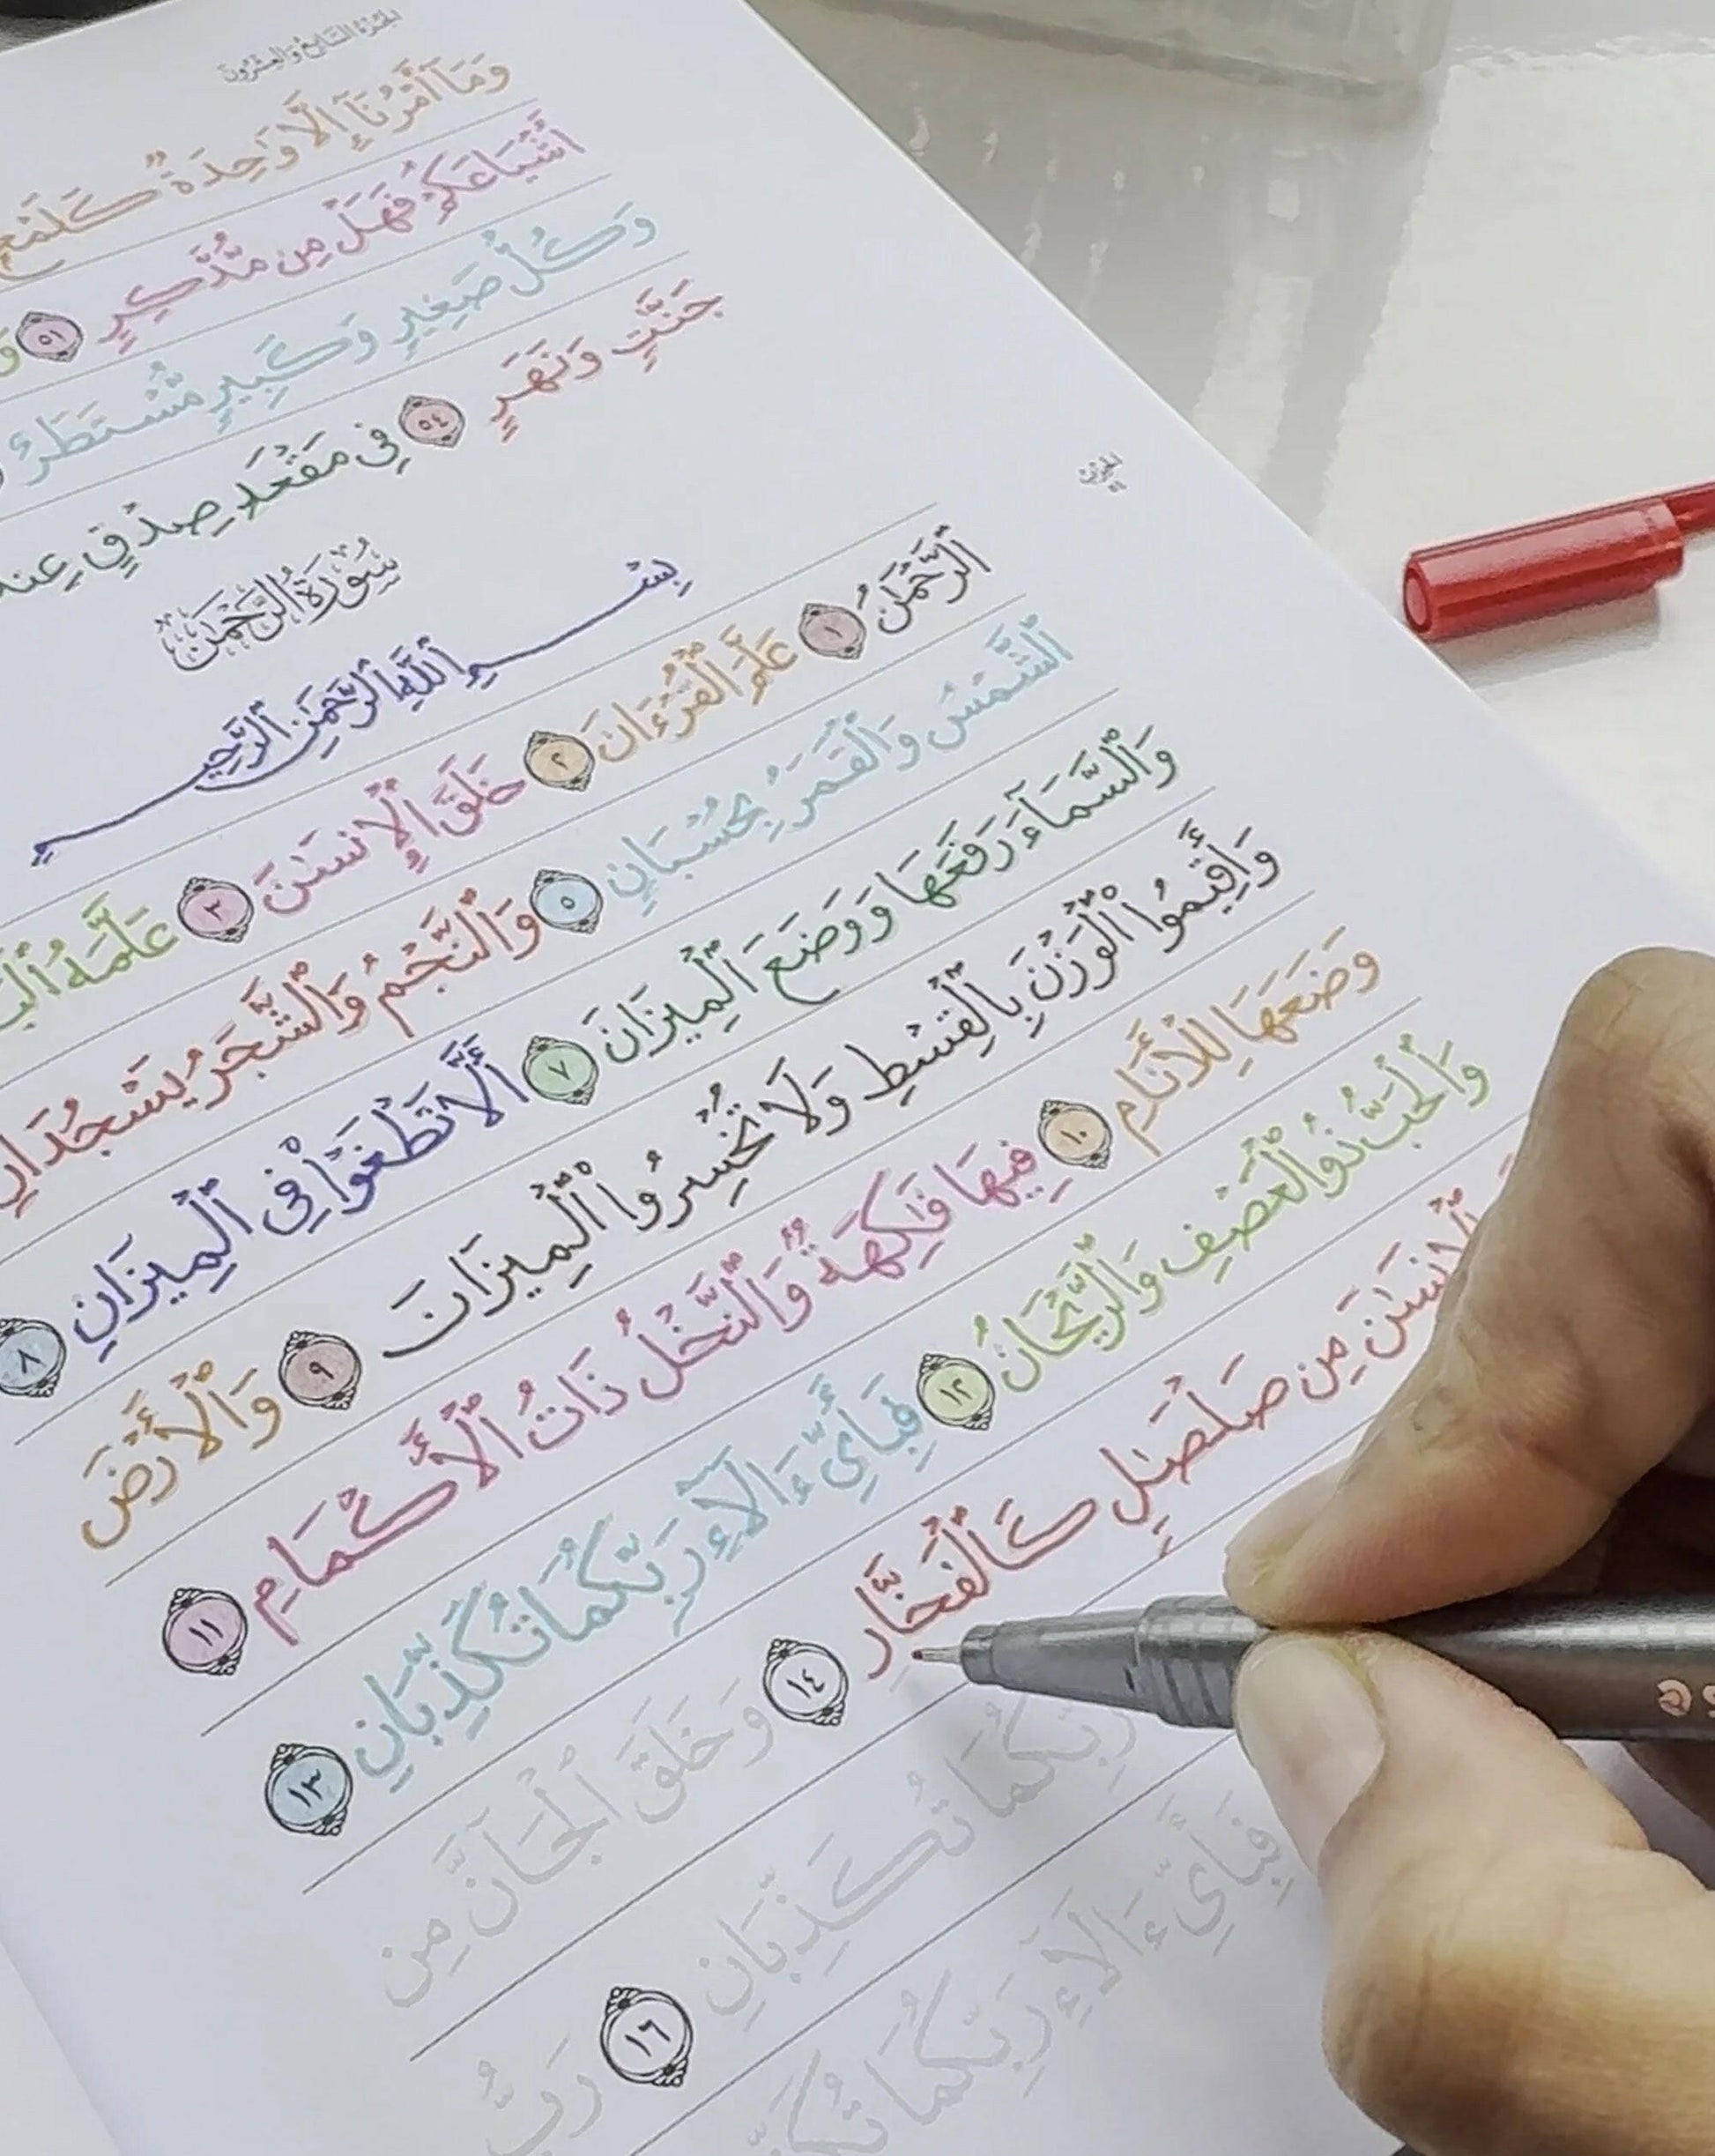 الجزء السابع والعشرون
وَمَآ أَمۡرُنَآ إِلَّا وَٰحِدَةٞ كَلَمۡحِۭ
أَشۡيَاعَكُمۡ فَهَلۡ مِن مُّدَّكِرٖ ٥١
وَكُلُّ صَغِيرٖ وَكَبِيرٖ مُّسۡتَطَرٌ
جَنَّٰتٖ وَنَهَرٖ ٥٤ فِي مَقۡعَدِ صِدۡقٍ عِندَ
سُورَةُ الرَّحۡمَٰن
بِسۡمِ ٱللَّهِ ٱلرَّحۡمَٰنِ ٱلرَّحِيمِ
ٱلرَّحۡمَٰنُ ١ عَلَّمَ ٱلۡقُرۡءَانَ ٢ خَلَقَ ٱلۡإِنسَٰنَ ٣ عَلَّمَهُ
ٱلشَّمۡسُ وَٱلۡقَمَرُ بِحُسۡبَانٖ ٥ وَٱلنَّجۡمُ وَٱلشَّجَرُ يَسۡجُدَانِ
وَٱلسَّمَآءَ رَفَعَهَا وَوَضَعَ ٱلۡمِيزَانَ ٧ أَلَّا تَطۡغَوۡاْ فِي ٱلۡمِيزَانِ ٨
وَأَقِيمُواْ ٱلۡوَزۡنَ بِٱلۡقِسۡطِ وَلَا تُخۡسِرُواْ ٱلۡمِيزَانَ ٩ وَٱلۡأَرۡضَ
وَضَعَهَا لِلۡأَنَامِ ١٠ فِيهَا فَٰكِهَةٞ وَٱلنَّخۡلُ ذَاتُ ٱلۡأَكۡمَامِ ١١
وَٱلۡحَبُّ ذُو ٱلۡعَصۡفِ وَٱلرَّيۡحَانُ ١٢ فَبِأَيِّ ءَالَآءِ رَبِّكُمَا تُكَذِّبَانِ ١٣
ٱلۡإِنسَٰنَ مِن صَلۡصَٰلٖ كَٱلۡفَخَّارِ ١٤ وَخَلَقَ ٱلۡجَآنَّ مِن
رَبِّكُمَا تُكَذِّبَانِ ١٦ رَبُّ
فَبِأَيِّ ءَالَآءِ رَبِّكُمَا